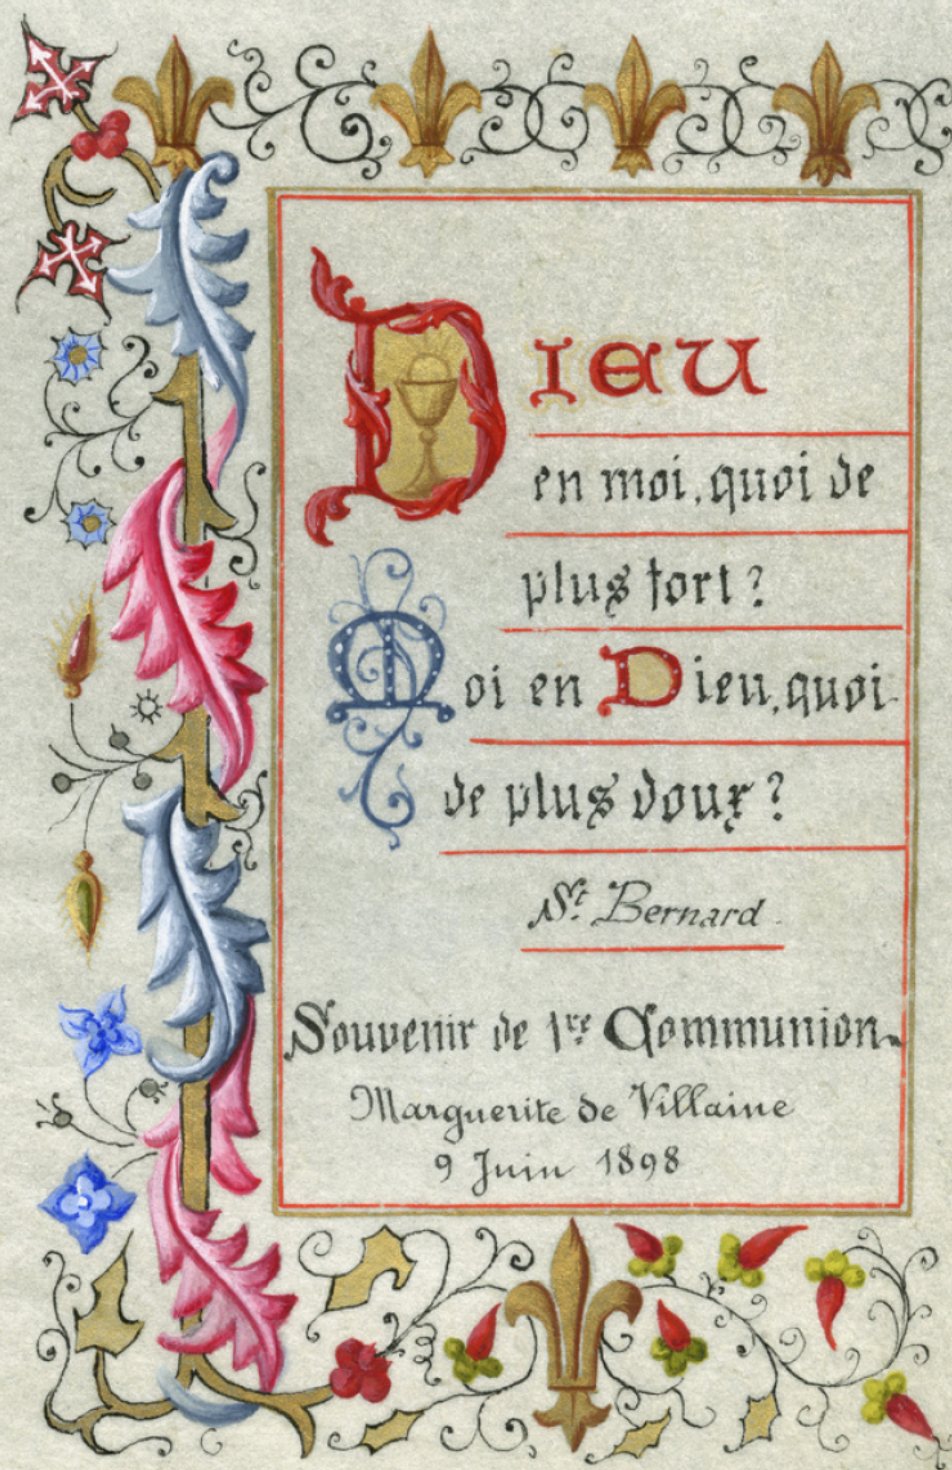 Dieu
en moi, quoi de
plus fort ?
Moi en Dieu, quoi
de plus doux ?
St. Bernard.
Souvenir de 1re Communion.
Marguerite de Villaine
9 Juin 1898